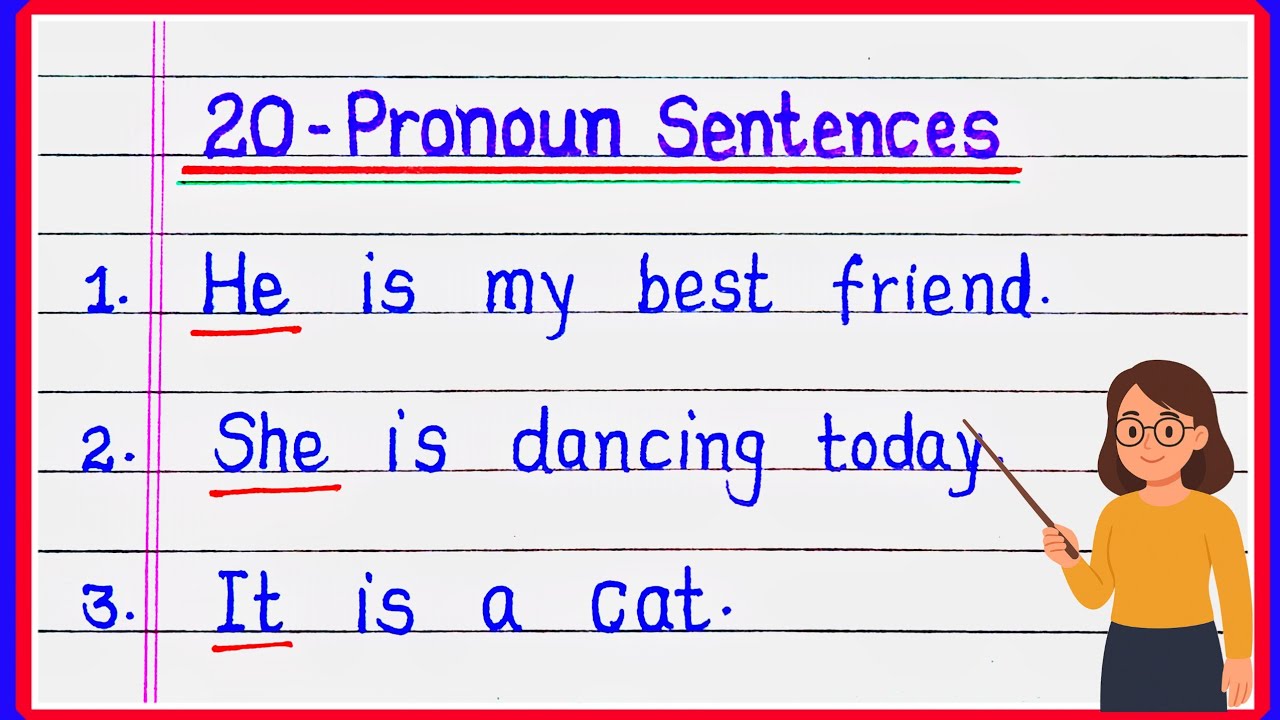 20-Pronoun Sentences
1. He is my best friend.
2. She is dancing today.
3. It is a cat.